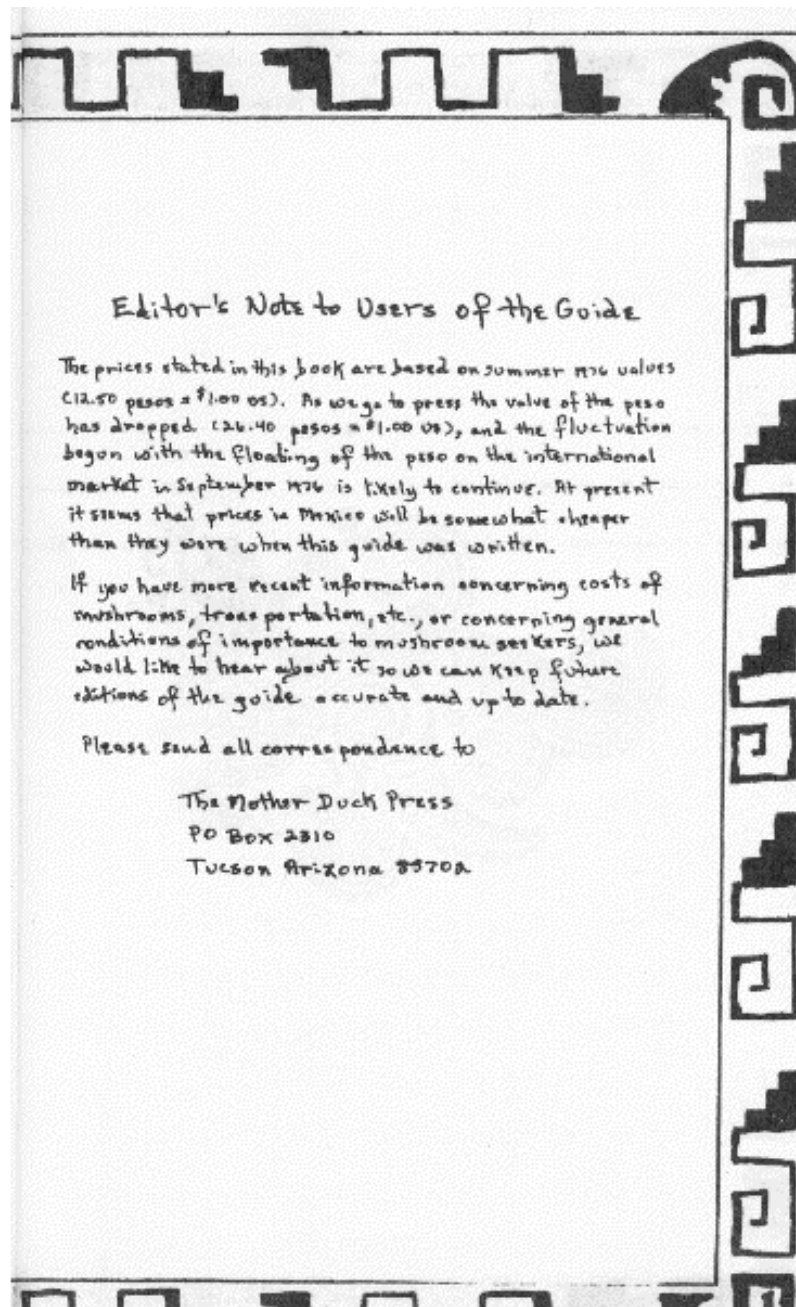 Editor's Note to Users of the Guide
The prices stated in this book are based on summer 1976 values
(12.50 pesos = $1.00 US). As we go to press the value of the peso
has dropped (26.40 pesos = $1.00 US), and the fluctuation
begun with the floating of the peso on the international
market in September 1976 is likely to continue. At present
it seems that prices in Mexico will be somewhat cheaper
than they were when this guide was written.
If you have more recent information concerning costs of
mushrooms, transportation, etc., or concerning general
conditions of importance to mushroom seekers, we
would like to hear about it so we can keep future
editions of the guide accurate and up to date.
Please send all correspondence to
The Mother Duck Press
PO Box 2310
Tucson Arizona 85702